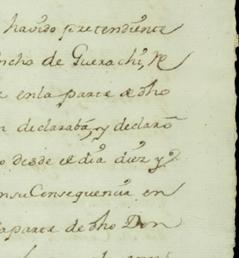 havido pretendiente
ncho de Guerachi, Re
enla parte de dho
n declaraba, y declaró
o desde el dia diez y
ensu Consequencia en
la parte de dho Don